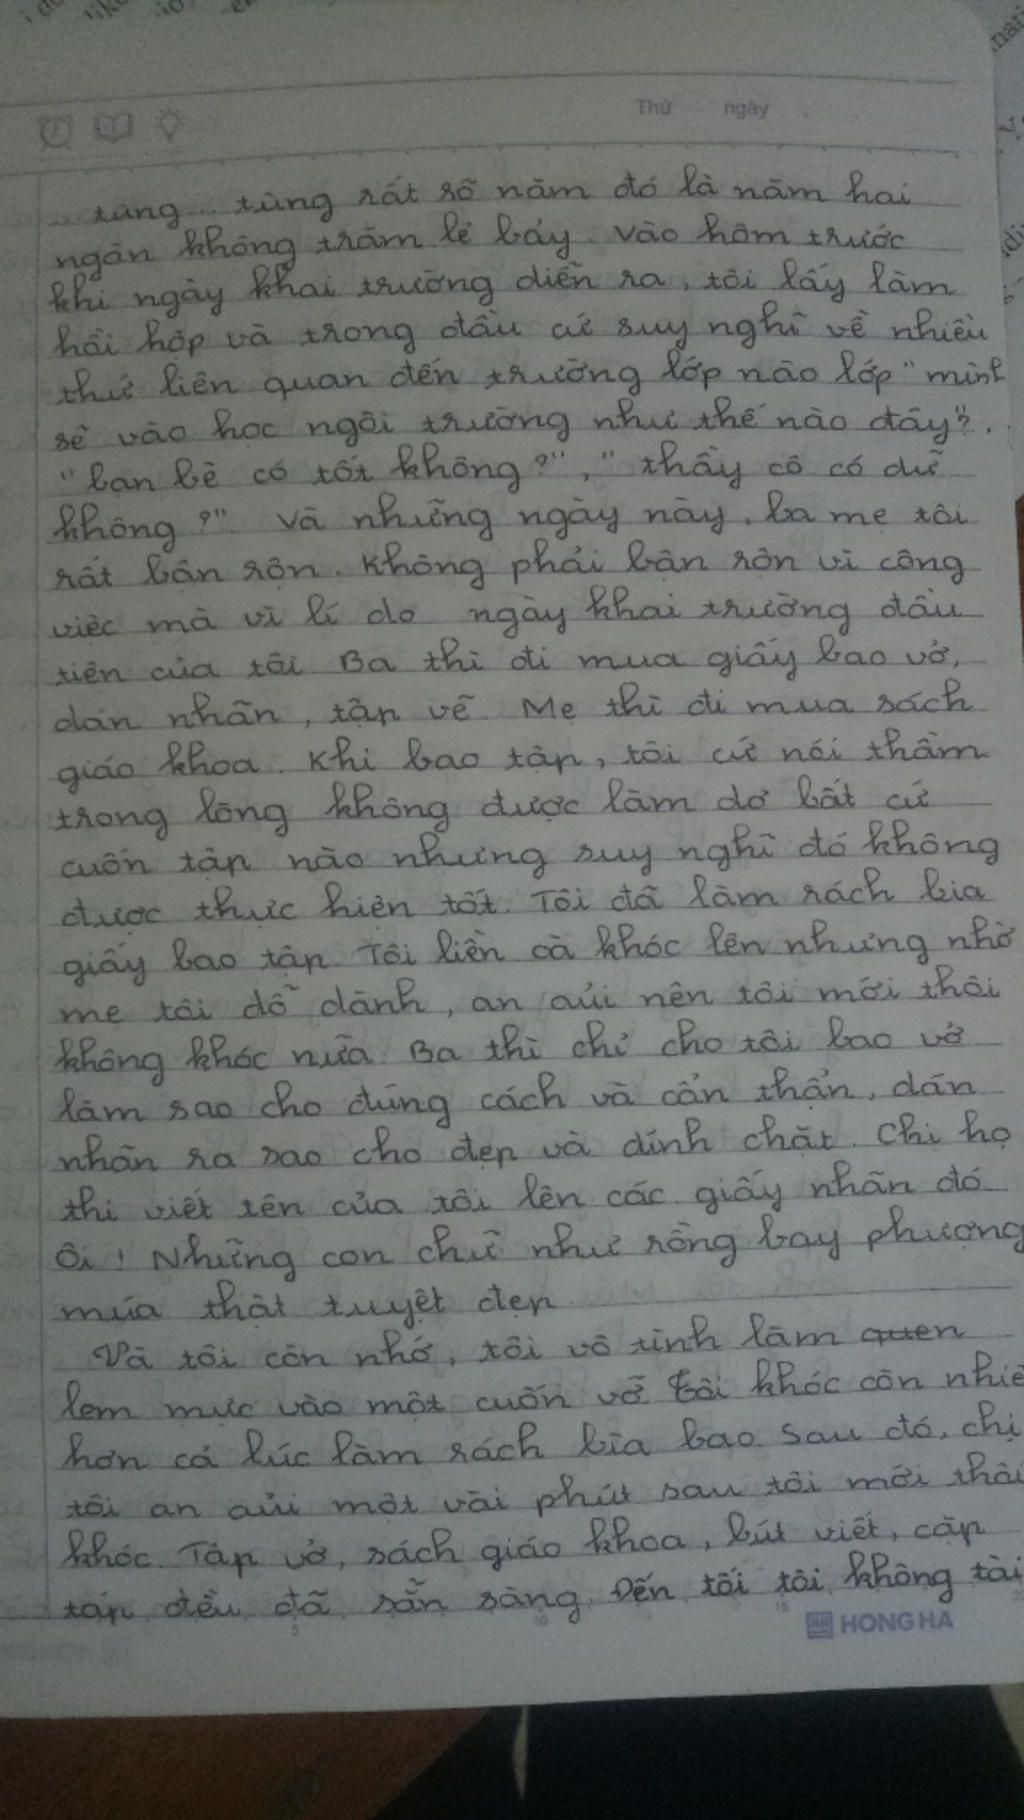 Thứ ngày
... tùng ... tùng rất rõ năm đó là năm hai
ngàn không trăm lẻ bảy. Vào hôm trước
khi ngày khai trường diễn ra, tôi lấy làm
hồi hộp và trong đầu cứ suy nghĩ về nhiều
thứ liên quan đến trường lớp nào lớp "mình
sẽ vào học ngôi trường như thế nào đây?".
"bạn bè có tốt không?", "thầy cô có dữ
không?". Và những ngày này, ba mẹ tôi
rất bận rộn. Không phải bận rộn vì công
việc mà vì lí do ngày khai trường đầu
tiên của tôi. Ba thì đi mua giấy bao vở,
dán nhãn, tập vẽ. Mẹ thì đi mua sách
giáo khoa. Khi bao tập, tôi cứ nói thầm
trong lòng không được làm dơ bất cứ
cuốn tập nào nhưng suy nghĩ đó không
được thực hiện tốt. Tôi đã làm rách bìa
giấy bao tập. Tôi liền oà khóc lên nhưng nhờ
mẹ tôi dỗ dành, an ủi nên tôi mới thôi
không khóc nữa. Ba thì chỉ cho tôi bao vở
làm sao cho đúng cách và cẩn thận, dán
nhãn ra sao cho đẹp và dính chặt. Chị họ
thì viết tên của tôi lên các giấy nhãn đó
Ôi! Những con chữ như rồng bay phượng
múa thật tuyệt đẹp
Và tôi còn nhớ, tôi vô tình làm quen
lem mực vào một cuốn vở. Tôi khóc còn nhiề
hơn cả lúc làm rách bìa bao. Sau đó, chị
tôi an ủi một vài phút sau tôi mới thôi
khóc. Tập vở, sách giáo khoa, bút viết, cặp
táp đều đã sẵn sàng. Đến tối tôi không tài
HONG HA